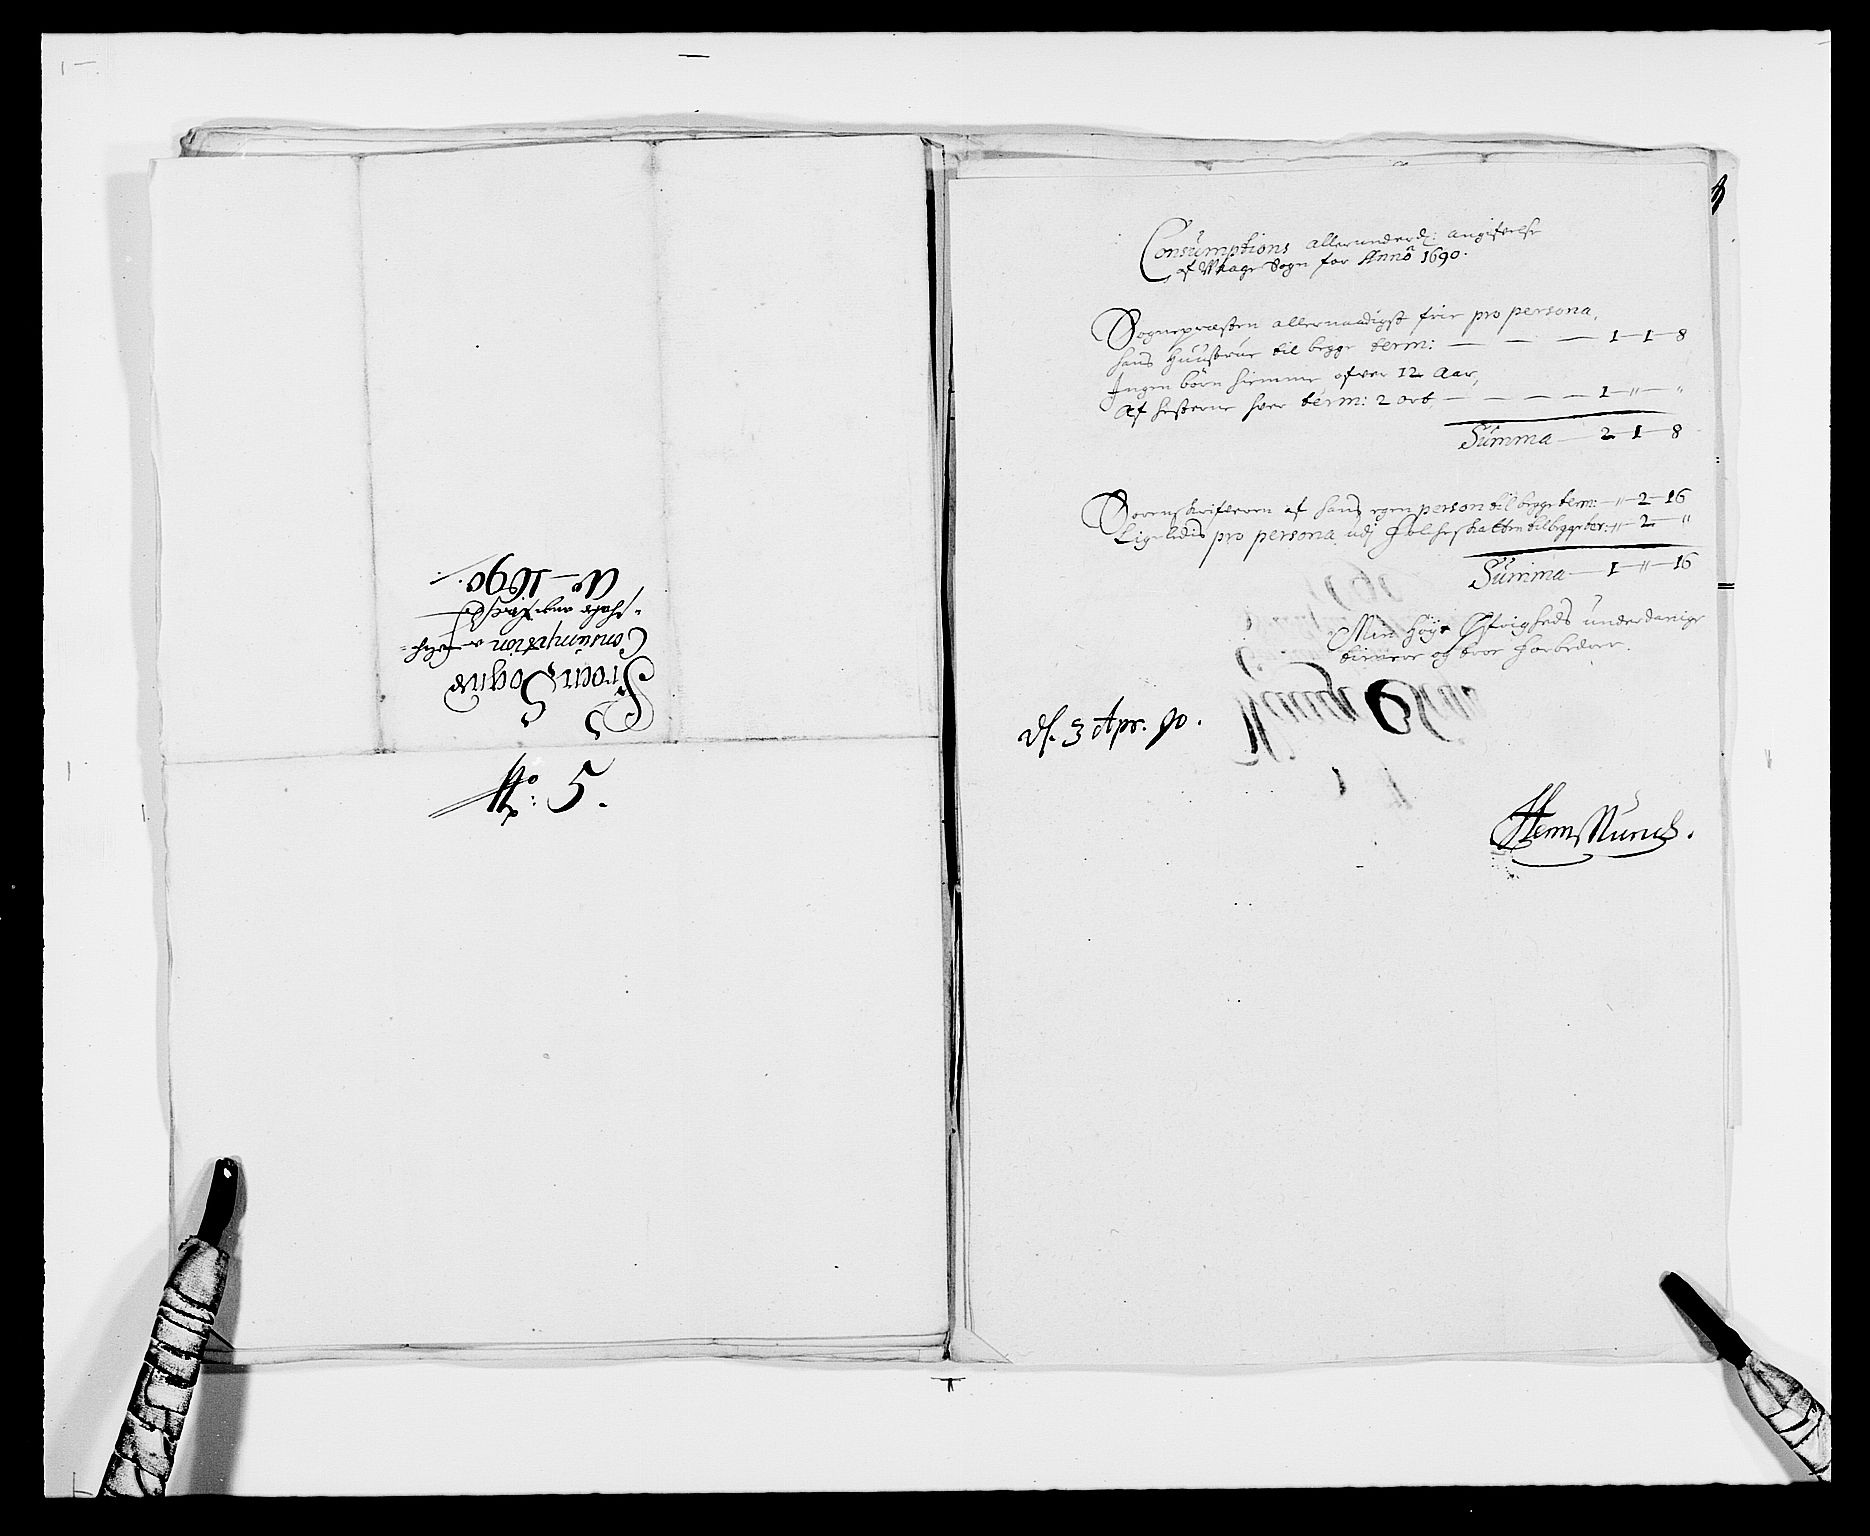 Froen Sogns
Consumption och
folche angifvelse
Ao 1690.
No: 5.
Consumptions allerunderd: angifvelse
af Waage Sogn for Anno 1690.
Sognepræsten allernaadigst frir pro persona,
hans Huustrue til begge term: — — — 1 — 1 — 8
Ingen børn hiemme ofver 12 Aar,
Af hesterne hver term: 2 ort, — — — — 1 — " — "
Summa — 2 — 1 — 8
Sorenskrifveren af hans egen person til begge term: — " — 2 — 16
Ligeledis pro persona udj Folcheskatten til begge ter: — " — 2 — "
Summa — 1 — " — 16
Min høye Øfvrigheds underdanige
tienere og troe forbedere.
d. 3 Apr. 90.
Waage Sogn
Henn Munch.